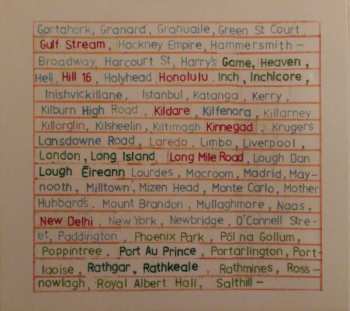 Gortahork, Granard, Granuaile, Green St Court,
Gulf Stream, Hackney Empire, Hammersmith -
Broadway, Harcourt St, Harry's Game, Heaven,
Hell, Hill 16, Holyhead Honolulu. Inch, Inchicore,
Inishvickillane, Istanbul, Katanga, Kerry,
Kilburn High Road, Kildare, Kilfenora, Killarney
Killorglin, Kilsheelin, Kiltimagh Kinnegad, Krugers
Lansdowne Road, Laredo, Limbo, Liverpool,
London, Long Island, Long Mile Road, Lough Dan
Lough Éireann Lourdes, Macroom, Madrid, May-
nooth, Milltown, Mizen Head, Monte Carlo, Mother
Hubbards. Mount Brandon, Mullaghmore, Naas,
New Delhi, New York, Newbridge, O'Connell Stre-
et, Paddington, Phoenix Park, Pól na Gollum,
Poppintree, Port Au Prince, Portarlington, Port-
laoise, Rathgar, Rathkeale, Rathmines, Ross-
nowlagh, Royal Albert Hall, Salthill -